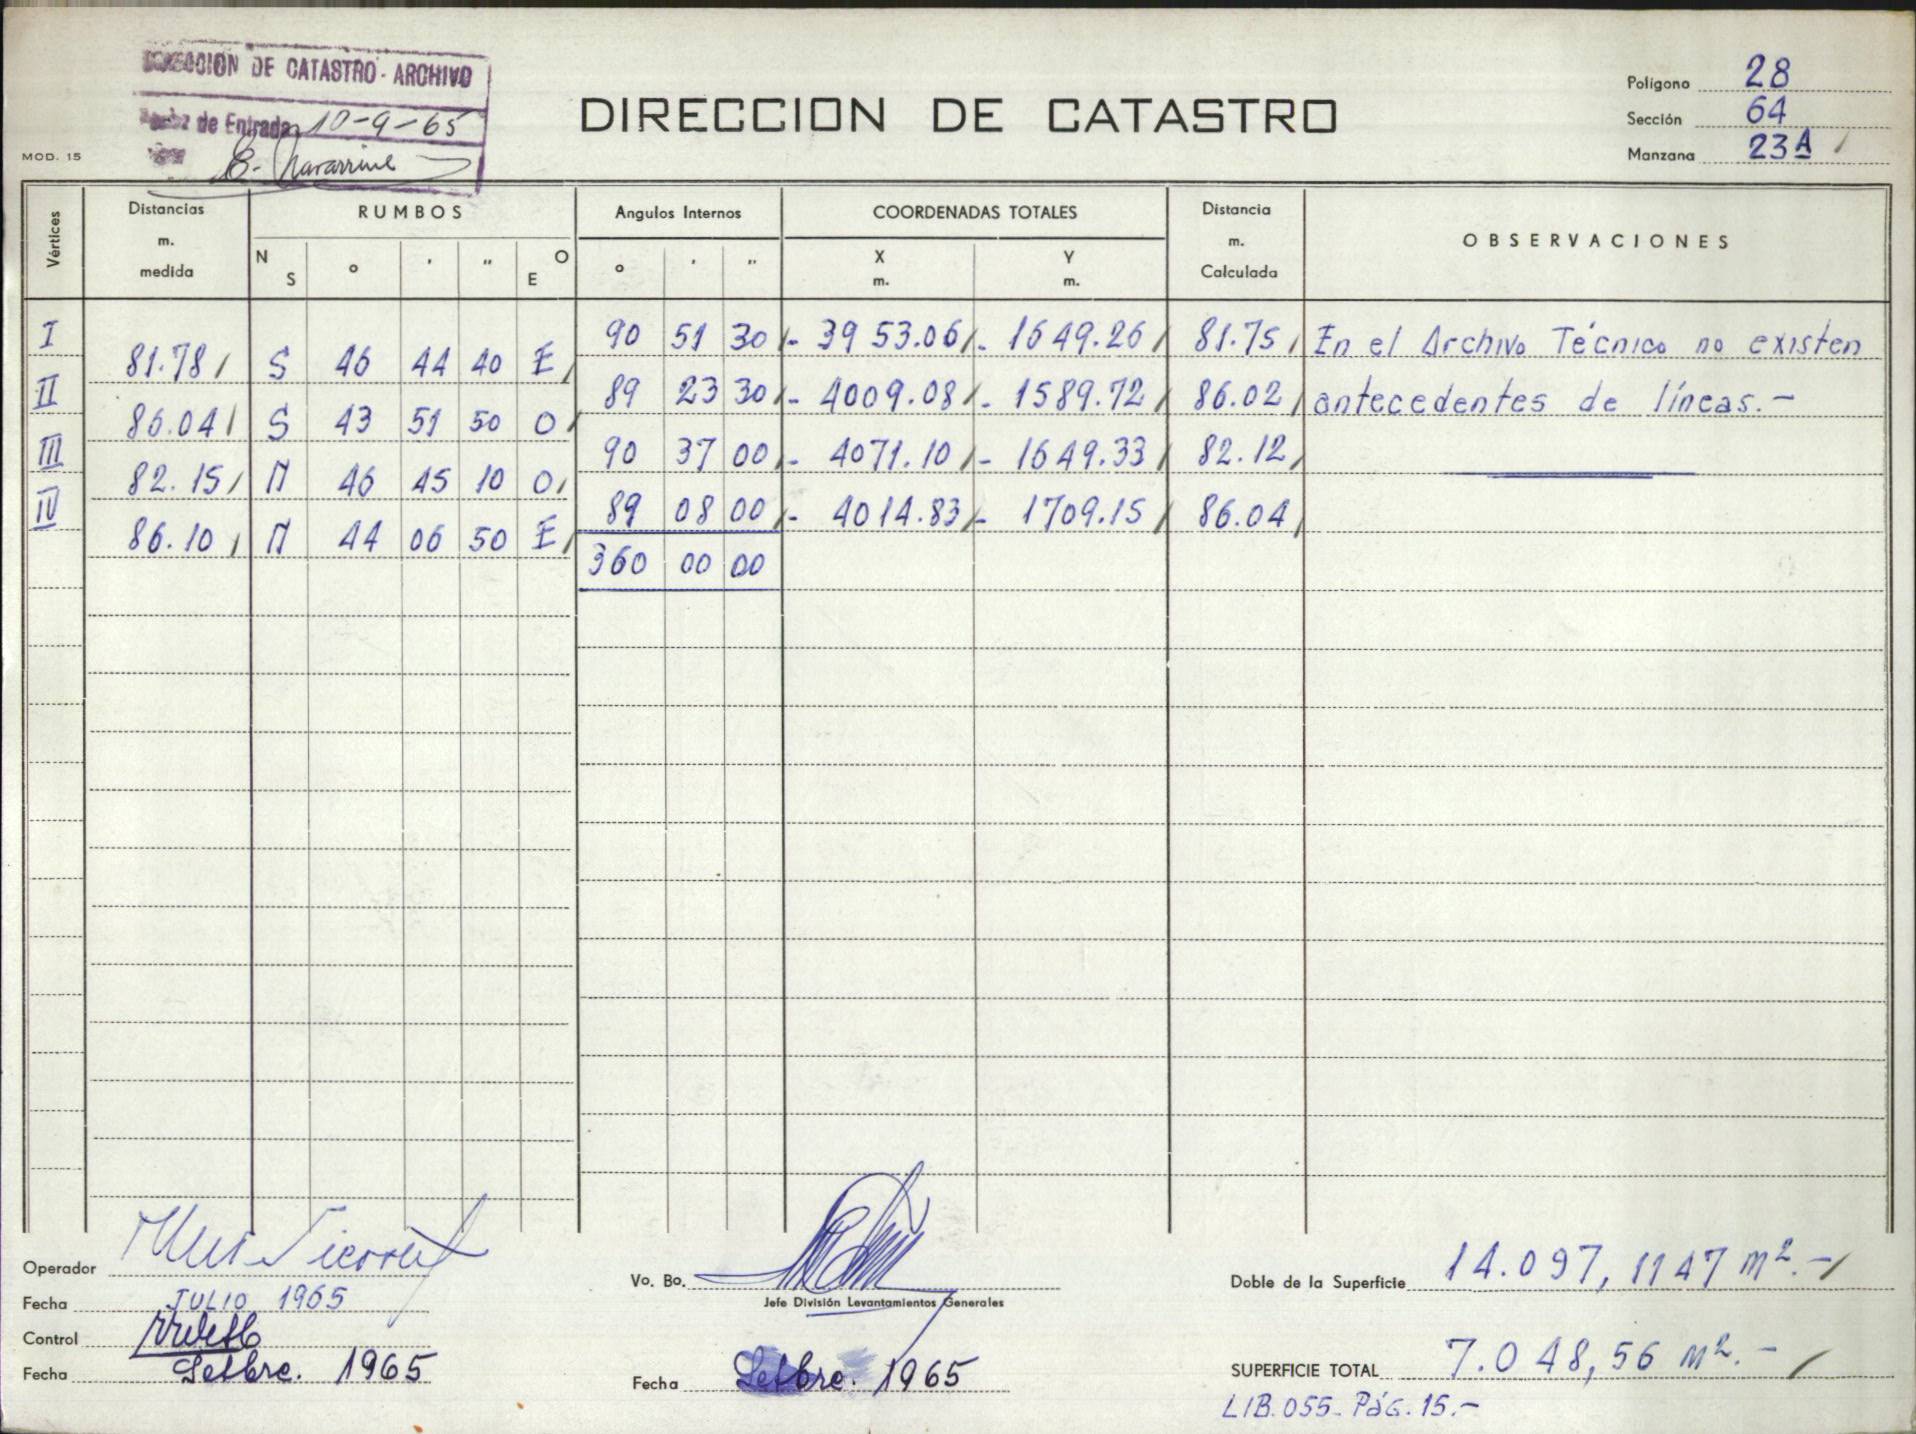 DIRECCION DE CATASTRO - ARCHIVO
de Entrada 10-9-65
MOD. 15
DIRECCION DE CATASTRO
Polígono 28
Sección 64
Manzana 23A
Vértices Distancias m. medida RUMBOS Angulos Internos COORDENADAS TOTALES Distancia m. Calculada OBSERVACIONES
N S ° ' " O E ° ' " X m. Y m.
I 90 51 30 - 3953.06 - 1649.26 81.75 En el Archivo Técnico no existen
81.78 S 46 44 40 E
II 89 23 30 - 4009.08 - 1589.72 86.02 antecedentes de líneas.-
86.04 S 43 51 50 O
III 90 37 00 - 4071.10 - 1649.33 82.12
82.15 N 46 45 10 O
IV 89 08 00 - 4014.83 - 1709.15 86.04
86.10 N 44 06 50 E
360 00 00
Operador
Fecha JULIO 1965
Control
Fecha Setbre. 1965
Vo. Bo.
Jefe División Levantamientos Generales
Fecha Setbre. 1965
Doble de la Superficie 14.097,1147 m².-
SUPERFICIE TOTAL 7.048,56 m².-
LIB. 055- Pág. 15.-